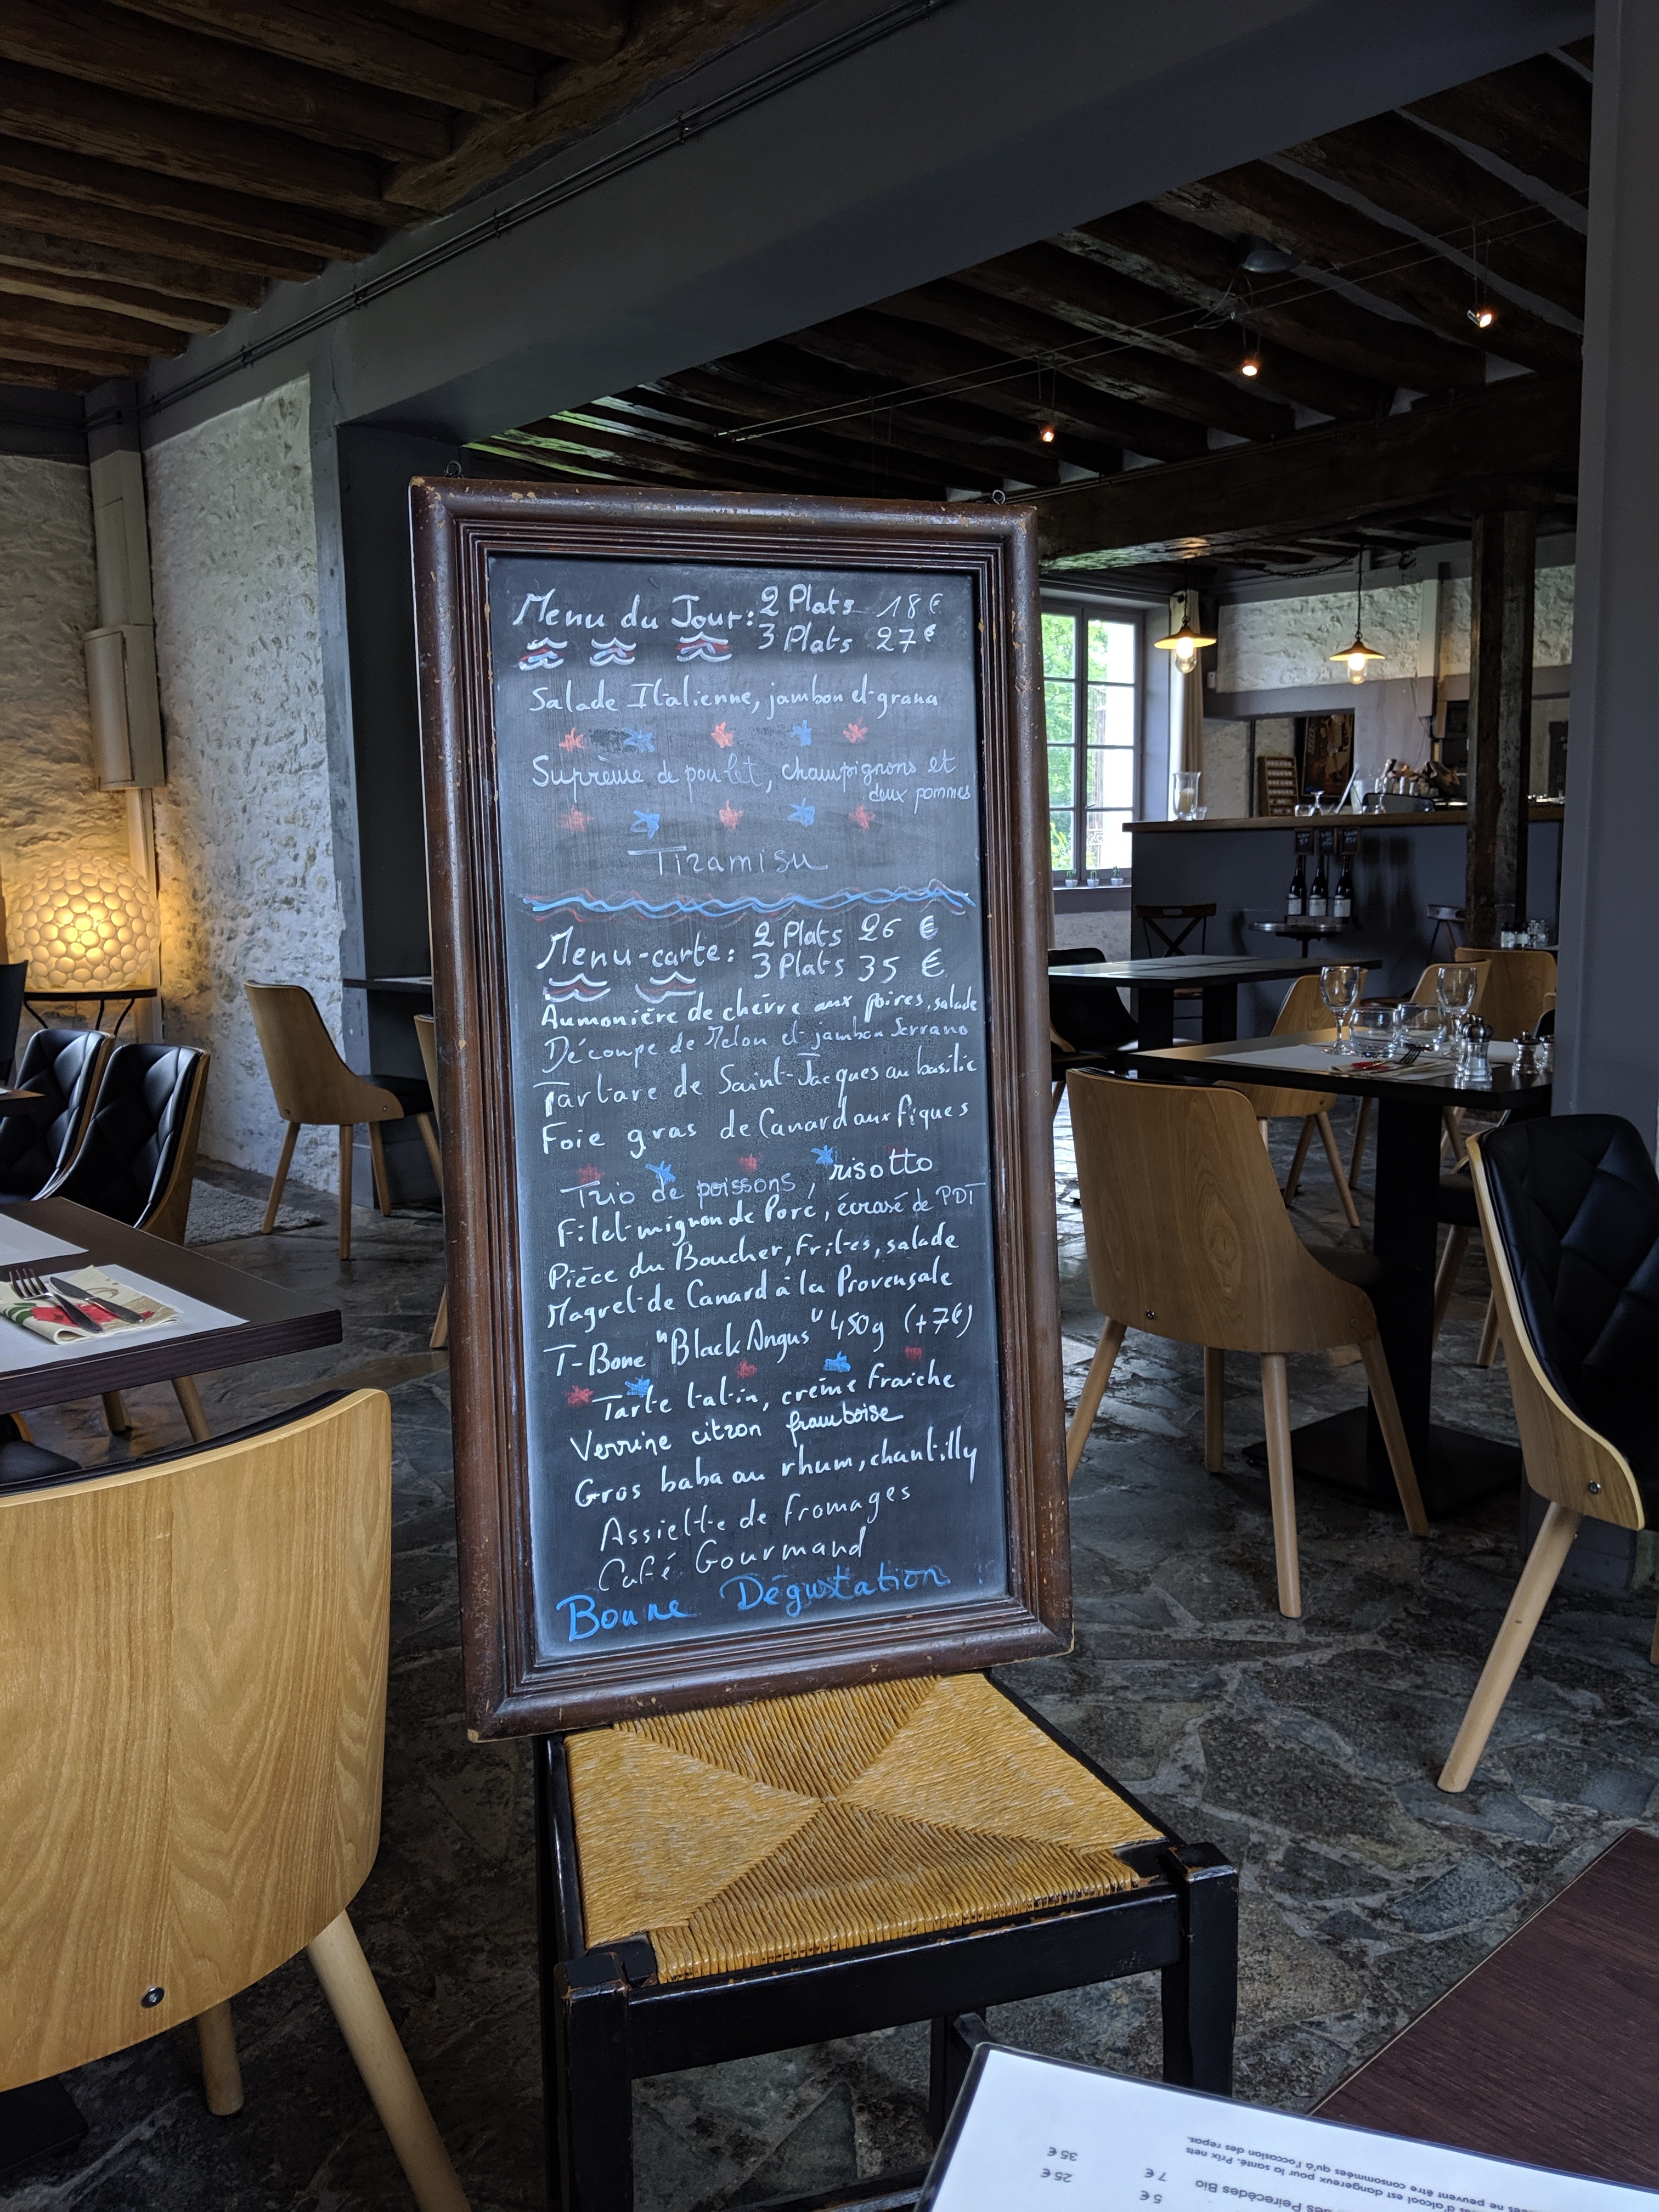 Menu du Jour: 2 Plats 18€
3 Plats 27€
Salade Italienne, jambon et grana
Suprème de poulet, champignons et
deux pommes
Tiramisu
Menu-carte: 2 Plats 26 €
3 Plats 35 €
Aumonière de chèvre aux poires, salade
Découpe de Melon et jambon Serrano
Tartare de Saint-Jacques au basilic
Foie gras de Canard aux figues
Trio de poissons, risotto
Filet mignon de Porc, écrasé de PDT
Pièce du Boucher, Frites, salade
Magret de Canard à la Provensale
T-Bone "Black Angus" 450g (+7€)
Tarte tatin, crème fraiche
Verrine citron framboise
Gros baba au rhum, chantilly
Assiette de Fromages
Café Gourmand
Bonne Dégustation !
5 €
25 €
7 €
35 €
des Peirecèdes Bio
d'alcool est dangereux pour la santé. Prix nets
peuvent être consommées qu'à l'occasion des repas.